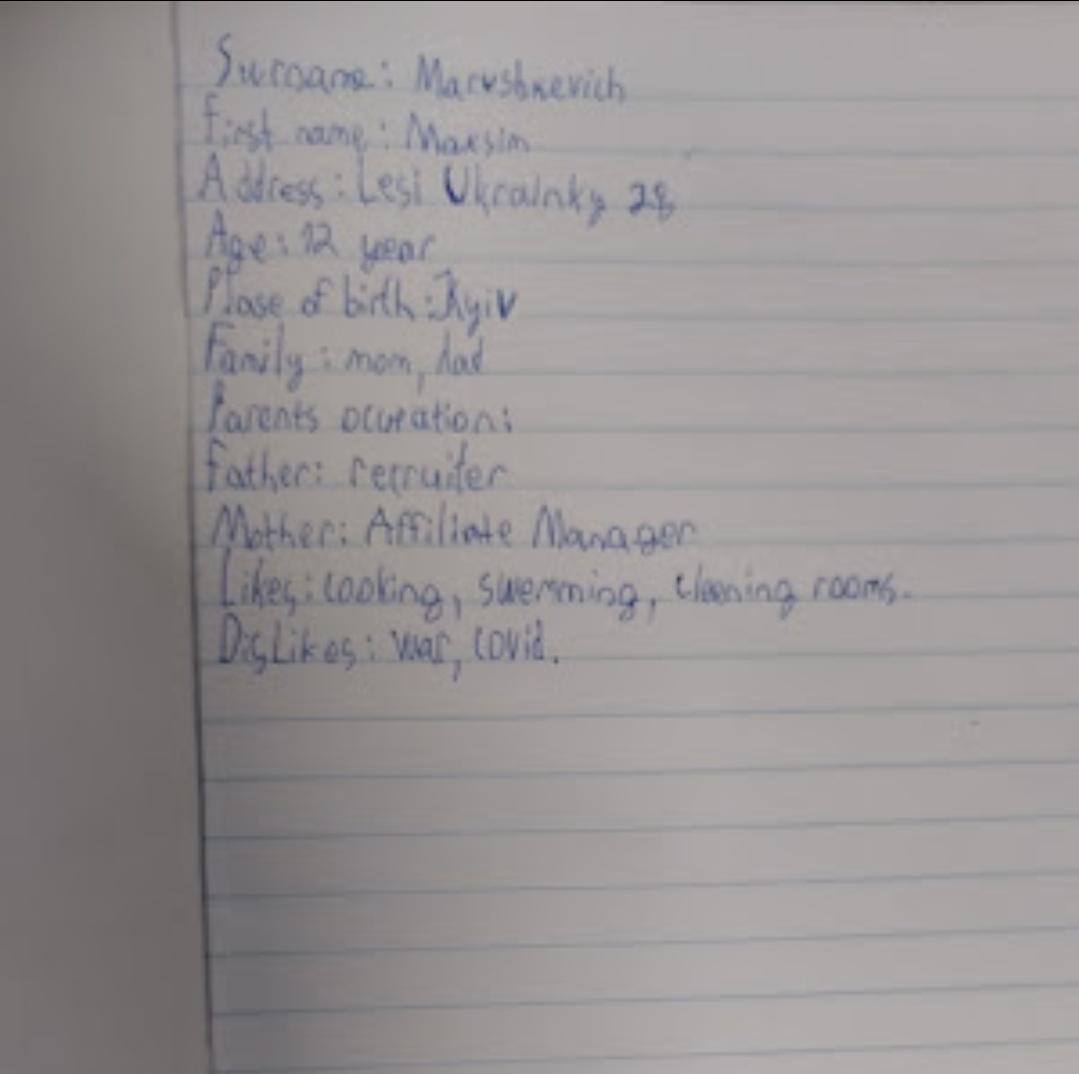 Surname: Marushkevich
First name: Maksim
Address: Lesi Ukrainky 28
Age: 12 year
Plase of birth: Kyiv
Family: mom, dad
Parents ocupation:
Father: recruiter
Mother: Affiliate Manager
Likes: cooking, swemming, cleening rooms.
DisLikes: war, covid.